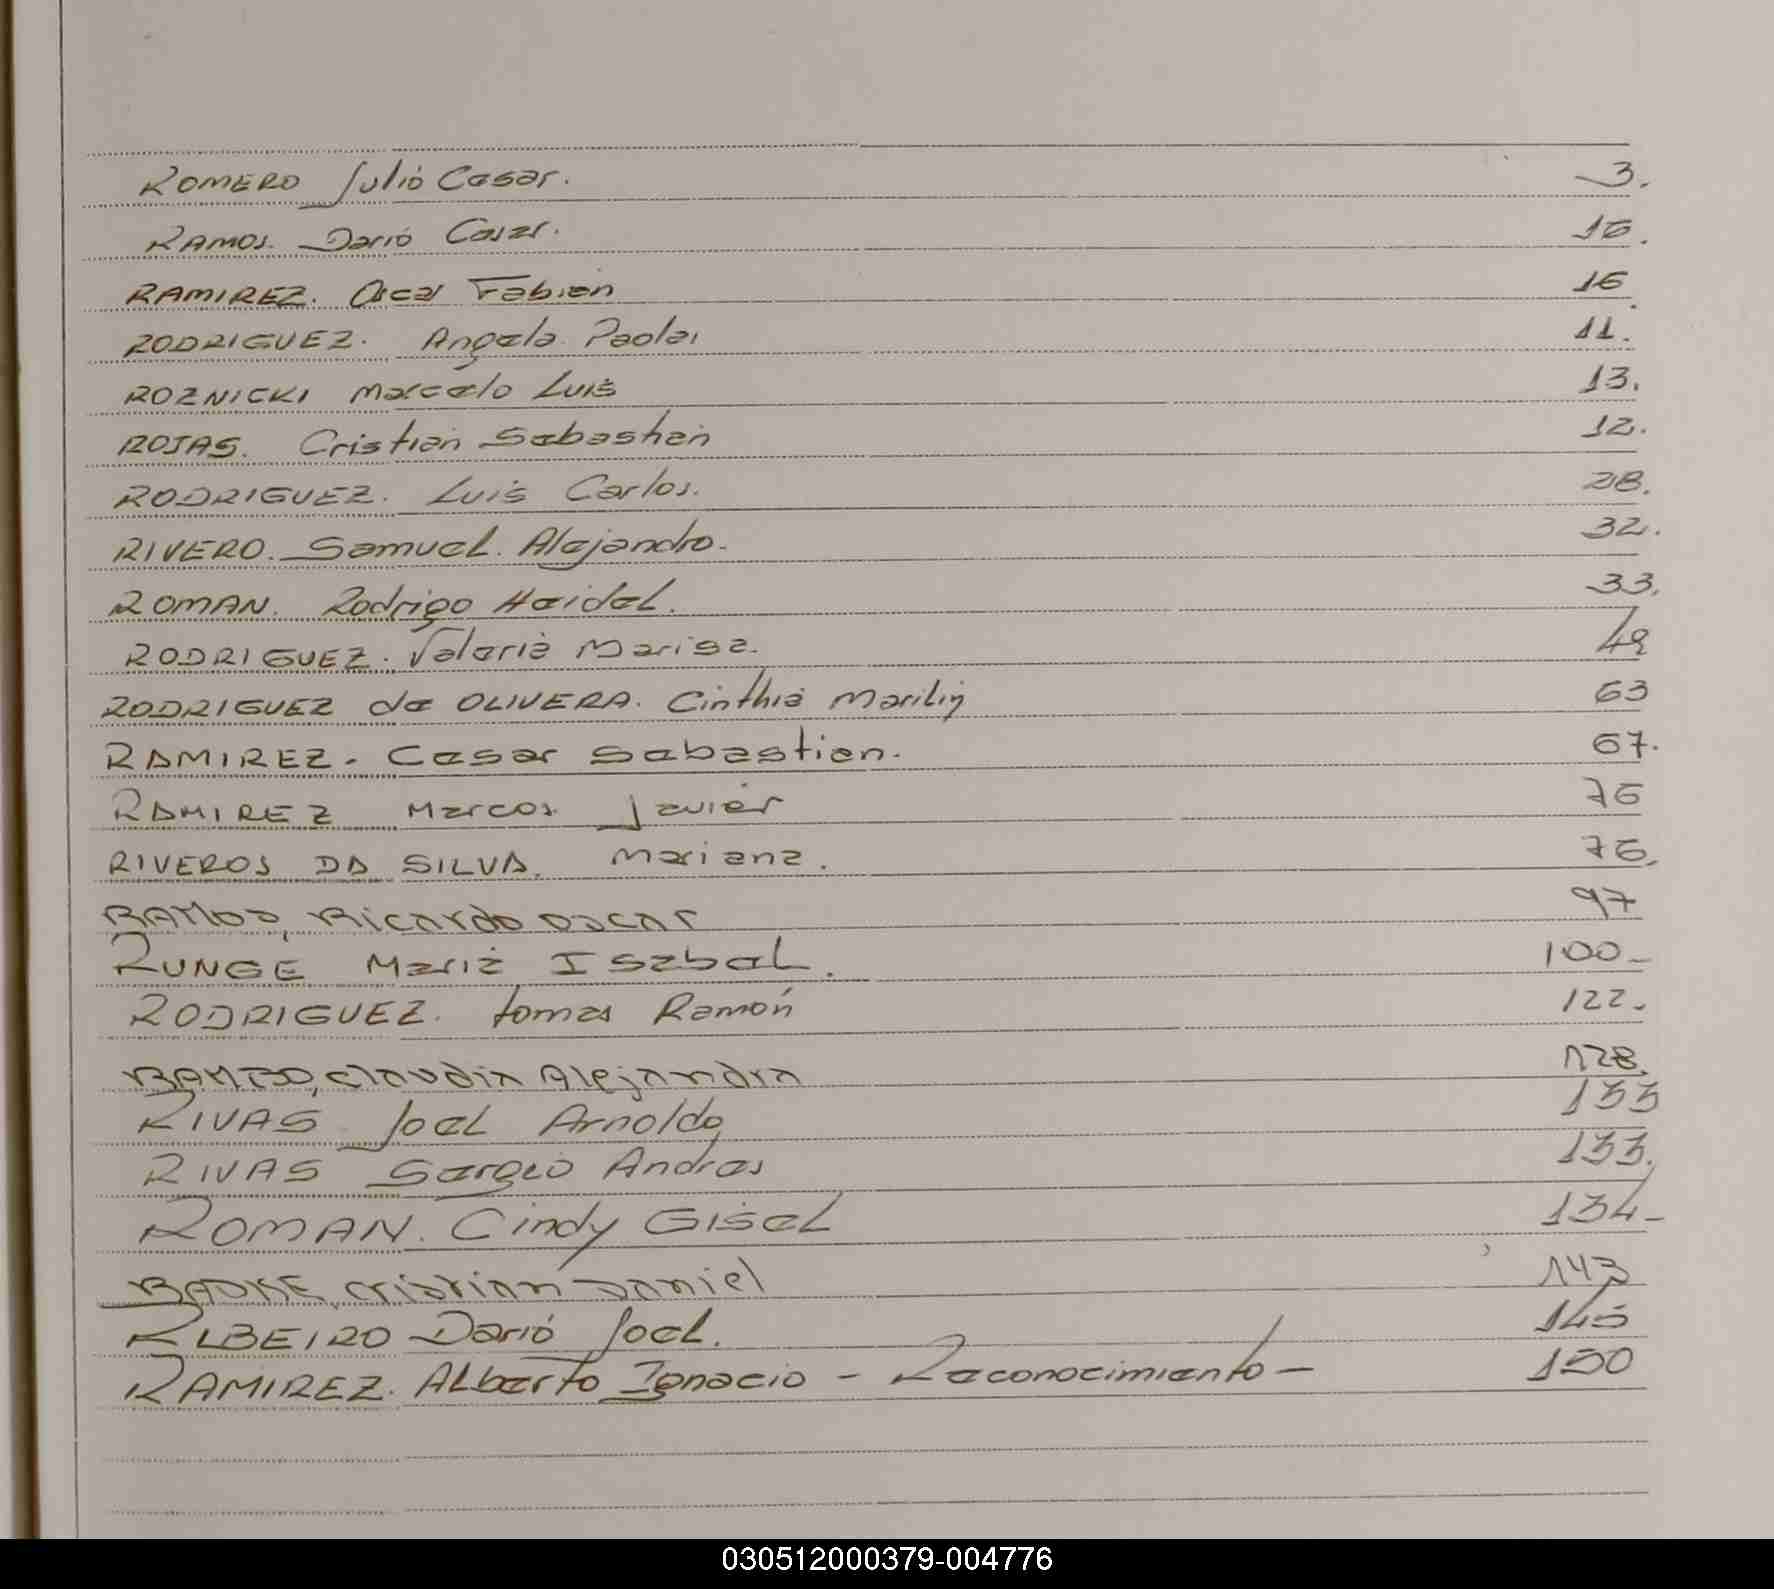 ROMERO Julio Cesar. 3.
RAMOS. Dario Cesar. 16.
RAMIREZ. Oscar Fabian 16.
RODRIGUEZ. Angela Paola 11.
ROZNICKI Marcelo Luis 13.
ROJAS. Cristian Sebastian 12.
RODRIGUEZ. Luis Carlos. 28.
RIVERO. Samuel. Alejandro. 32.
ROMAN. Rodrigo Haidel. 33.
RODRIGUEZ. Valeria Marisa. 49
RODRIGUEZ de OLIVERA. Cinthia Marilin 63
RAMIREZ. Cesar Sebastian. 67.
RAMIREZ Marcos Javier 76
RIVEROS DA SILVA. Mariana. 76.
RAMOS, Ricardo Oscar 97
RUNGE Maria Isabel. 100-
RODRIGUEZ. tomas Ramón 122.
Claudia Alejandra 128.
RIVAS Joel Arnoldo 133
RIVAS Sergio Andres 133.
ROMAN. Cindy Gisel 134-
Cristian Daniel 143
RIBEIRO Dario Joel. 145
RAMIREZ. Alberto Ignacio - Reconocimiento - 150
030512000379-004776